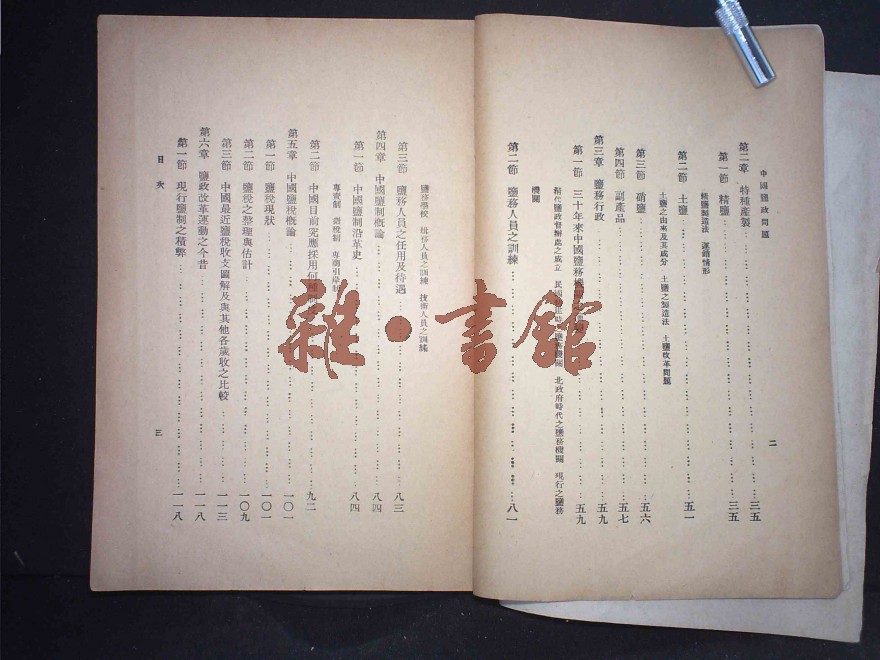 中國鹽政問題
二
第二章 特種產製……三五
第一節 精鹽……三五
精鹽製造法 運銷情形
第二節 土鹽……五一
土鹽之由來及其成分 土鹽之製造法 土鹽改革問題
第三節 硝鹽……五六
第四節 副產品……五七
第三章 鹽務行政……五九
第一節 三十年來中國鹽務機關……五九
清代鹽政督辦處之成立 民國 時 鹽務機關 北政府時代之鹽務機關 現行之鹽務
機關
第二節 鹽務人員之訓練……八一
鹽務學校 緝務人員之訓練 技術人員之訓練
第三節 鹽務人員之任用及待遇……八三
第四章 中國鹽制概論……八四
第一節 中國鹽制沿革史……八四
專賣制 徵稅制 專商引岸制
第二節 中國目前究應採用何種制度……九二
第五章 中國鹽稅概論……一〇一
第一節 鹽稅現狀……一〇一
第二節 鹽稅之整理與估計……一〇九
第三節 中國最近鹽稅收支圖解及與其他各歲收之比較……一一三
第六章 鹽政改革運動之今昔……一一八
第一節 現行鹽制之積弊……一一八
目次
三
雜·書館